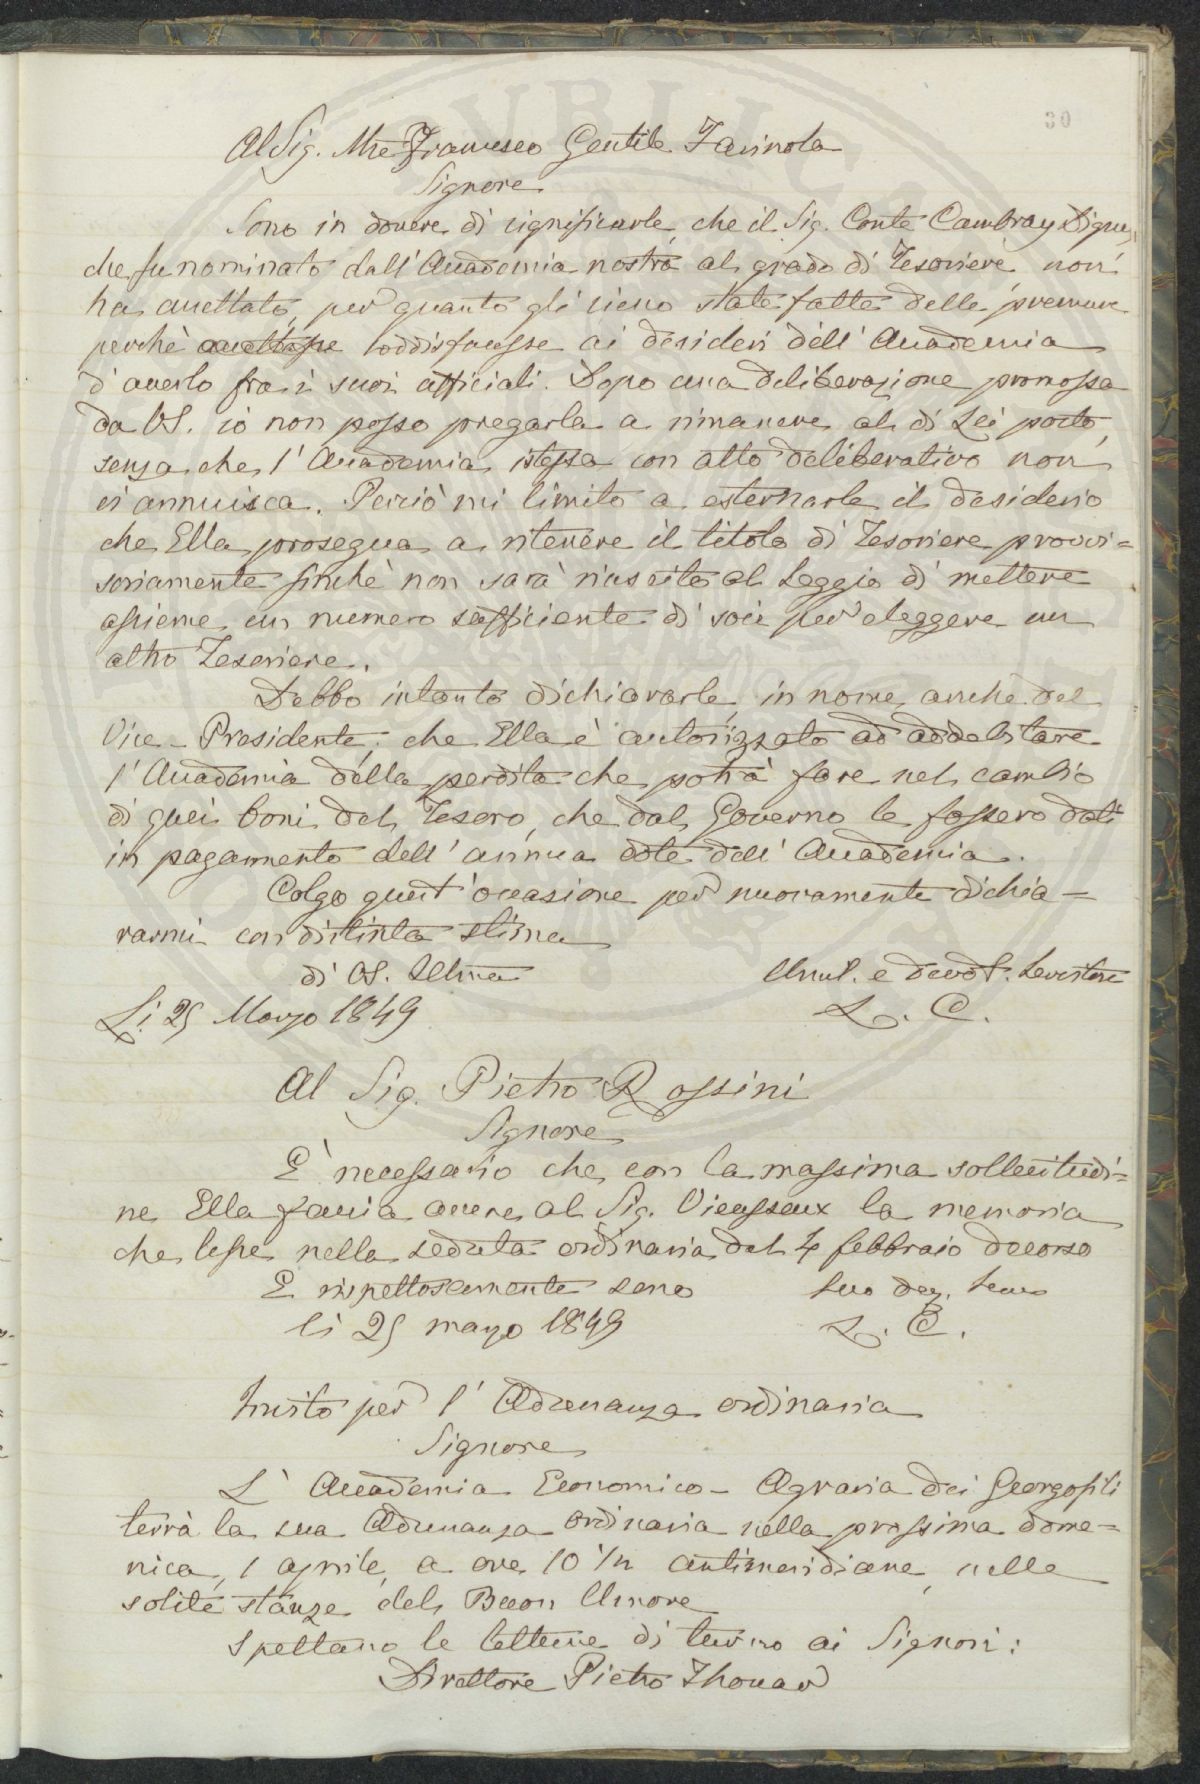 30
Al Sig. Mse Francesco Gentile Farinola
Signore
Sono in dovere di significarle, che il Sig. Conte Cambray Digny,
che fu nominato dall'Accademia nostra al grado di Tesoriere non
ha accettato, per quanto gli sieno state fatte delle premure
perchè accettasse soddisfacesse ai desideri dell'Accademia
d'averlo fra i suoi ufficiali. Dopo una deliberazione promossa
da VS. io non posso pregarla a rimanere al di Lei posto,
senza che l'Accademia istessa con atto deliberativo non
vi annuisca. Perciò mi limito a esternarle il desiderio
che Ella prosegua a ritenere il titolo di Tesoriere provvi=
soriamente finchè non sarà riuscito al Seggio di mettere
assieme un numero sufficiente di soci per eleggere un
altro Tesoriere.
Debbo intanto dichiararle, in nome anche del
Vice-Presidente, che Ella è autorizzato ad addebitare
l'Accademia della perdita che potrà fare nel cambio
di quei boni del Tesoro, che dal Governo le fossero dati
in pagamento dell'annua dote dell'Accademia.
Colgo quest'occasione per nuovamente dichia=
rarmi con distinta stima
di VS. Illma Umil. e devot. Servitore
Li 25 Marzo 1849 L. C.
Al Sig. Pietro Rossini
Signore
È necessario che con la massima sollecitudi=
ne Ella faccia avere al Sig. Vieusseux la memoria
che lesse nella seduta ordinaria del 4 febbraio decorso
E rispettosamente sono Suo dev. Servo
li 25 marzo 1849 L. C.
Invito per l'Adunanza ordinaria
Signore
L'Accademia Economico-Agraria dei Georgofili
terrà la sua Adunanza ordinaria nella prossima dome=
nica, 1 aprile, a ore 10 1/2 antimeridiane, nelle
solite stanze del Buon Umore
Spettano le letture di turno ai Signori:
Direttore Pietro Thouar